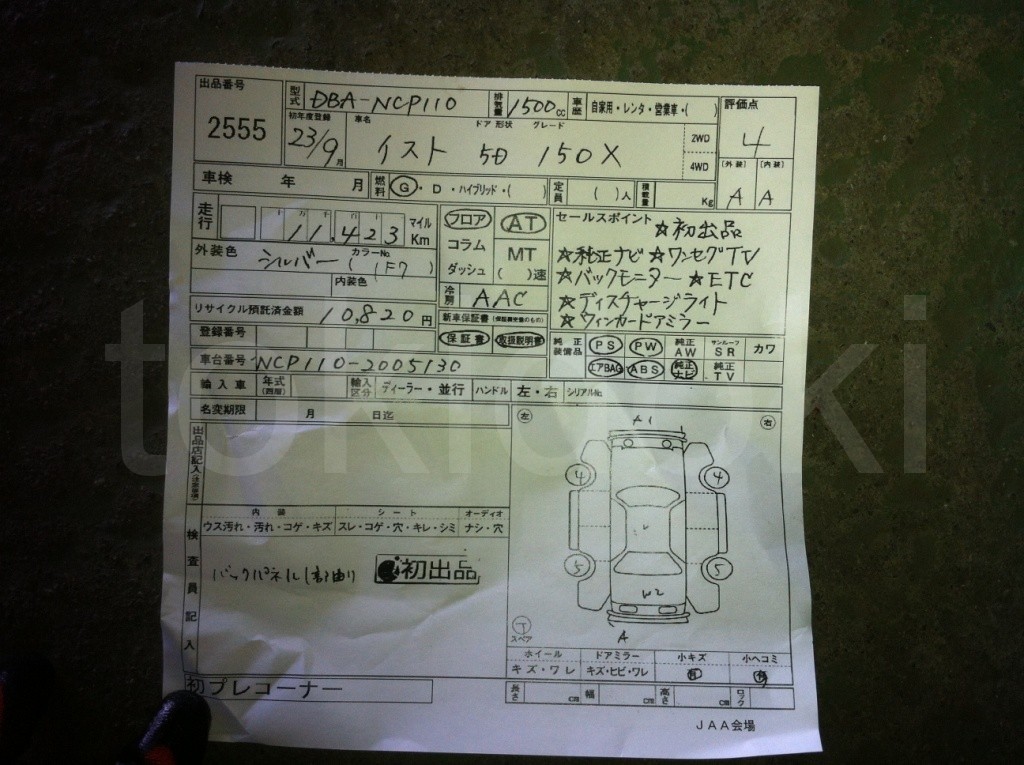 出品番号 型式 DBA-NCP110 排気量 1500cc 車歴 自家用・レンタ・営業車・( ) 評価点
2555 初年度登録 車名 ドア形状 グレード 4
23/9月 イスト 5D 150X 2WD
4WD [外装] [内装]
車検 年 月 燃料 G・D・ハイブリッド・( ) 定員 ( )人 積載量 Kg A A
走行 十 万 千 百 十 11,423 マイル Km フロア AT セールスポイント ☆初出品
コラム MT ☆純正ナビ ☆ワンセグTV
外装色 シルバー カラーNo. (1F7) ダッシュ ( )速 ☆バックモニター ☆ETC
内装色 冷房 AAC ☆ディスチャージライト
リサイクル預託済金額 10,820円 新車保証書(保証継承値のもの) ☆ウィンカードアミラー
登録番号 保証書 取扱説明書 純正装備品 PS PW 純正AW サンルーフSR カワ
車台番号 NCP110-2005130 エアBAG ABS 純正ナビ 純正TV
輸入車 年式 輸入区分 ディーラー・並行 ハンドル 左・右 シリアルNo.
名変期限 月 日迄 左 A1 右
出品店記入
4 4
内装 シート オーディオ
ウス汚れ・汚れ・コゲ・キズ スレ・コゲ・穴・キレ・シミ ナシ・穴
検査員記入
バックパネル 初出品 5 5
W2
T
スペア A
ホイール ドアミラー 小キズ 小ヘコミ
キズ・ワレ キズ・ヒビ・ワレ 有 有
初プレコーナー 長さ cm 幅 cm 高さ cm ロック
JAA会場
tokidoki